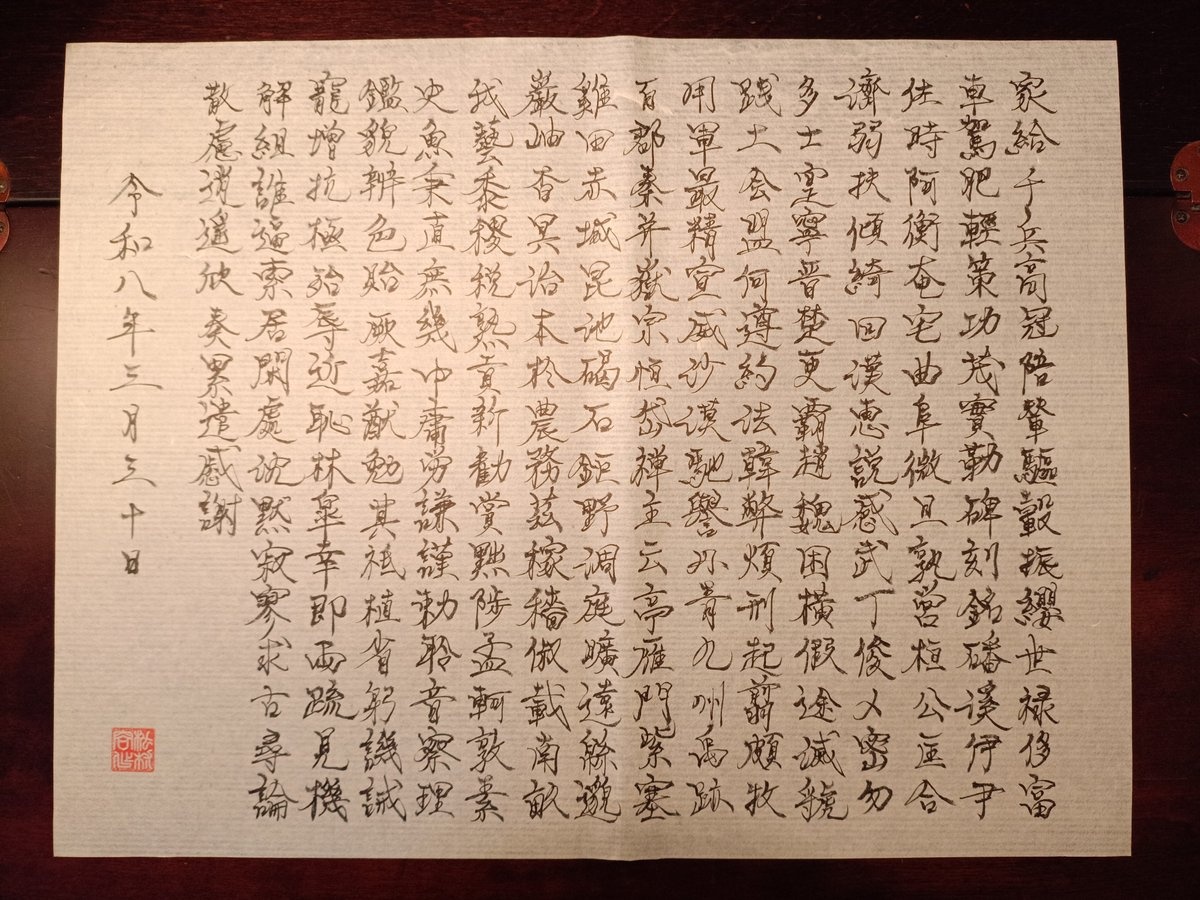 家給千兵高冠陪輦驅轂振纓世禄侈富
車駕肥輕策功茂實勒碑刻銘磻溪伊尹
佐時阿衡奄宅曲阜微旦孰營桓公匡合
濟弱扶傾綺回漢惠説感武丁俊乂密勿
多士寔寧晉楚更霸趙魏困橫假途滅虢
踐土会盟何遵約法韓弊煩刑起翦頗牧
用軍最精宣威沙漠馳譽丹青九州禹跡
百郡秦并嶽宗恒岱禅主云亭雁門紫塞
雞田赤城昆池碣石鉅野洞庭曠遠緜邈
巖岫杳冥治本於農務茲稼穡俶載南畝
我藝黍稷税熟貢新勸賞黜陟孟軻敦素
史魚秉直庶幾中庸勞謙謹勅聆音察理
鑑貌辨色貽厥嘉猷勉其祗植省躬譏誡
寵增抗極殆辱近恥林皋幸即兩疏見機
解組誰逼索居閑處沈默寂寥求古尋論
散慮逍遙欣奏累遣慼謝
令和八年三月三十日